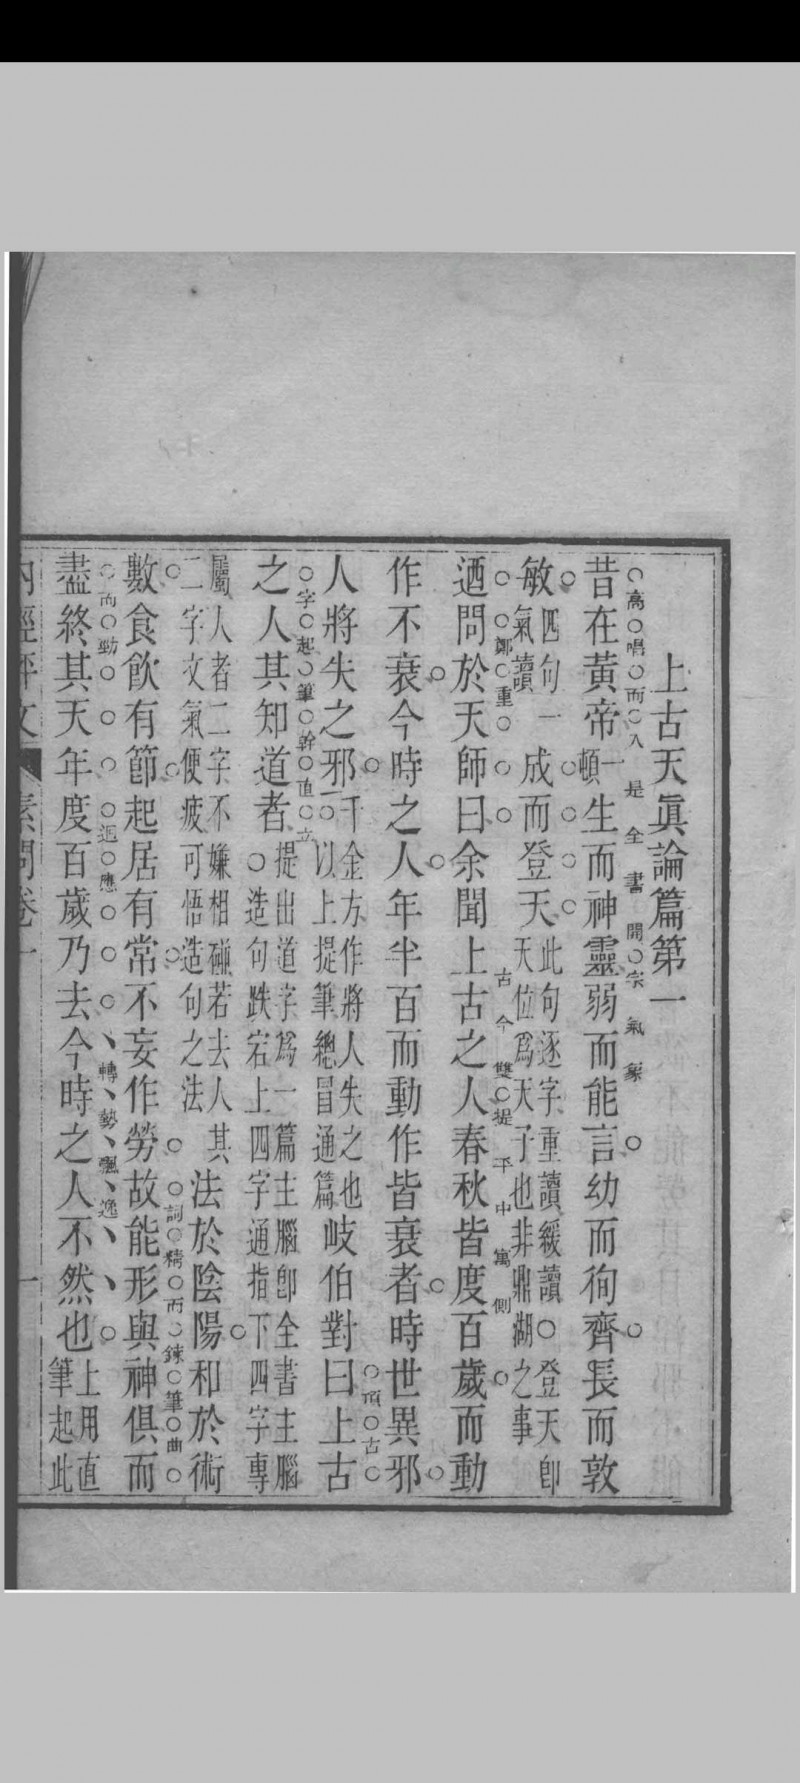 上古天眞論篇第一
高唱而入是全書開宗氣象
昔在黃帝一頓生而神靈弱而能言幼而徇齊長而敦
敏四句一氣讀成而登天此句逐字重讀緩讀○登天卽天位爲天子也非鼎湖之事
鄭重古今雙提平中寓側
迺問於天師曰余聞上古之人春秋皆度百歲而動
作不衰今時之人年半百而動作皆衰者時世異邪
頂古
人將失之邪千金方作將人失之也○以上提筆總冒通篇岐伯對曰上古
字起筆幹直立
之人其知道者提出道字爲一篇主腦卽全書主腦○造句跌宕上四字通指下四字專
屬人者二字不嫌相碰若去人其二字文氣便疲可悟造句之法法於陰陽和於術
詞精而鍊筆曲
數食飲有節起居有常不妄作勞故能形與神俱而
而勁迴應轉勢飄逸
盡終其天年度百歲乃去今時之人不然也上用直筆起此
內經評文 素問卷一 一